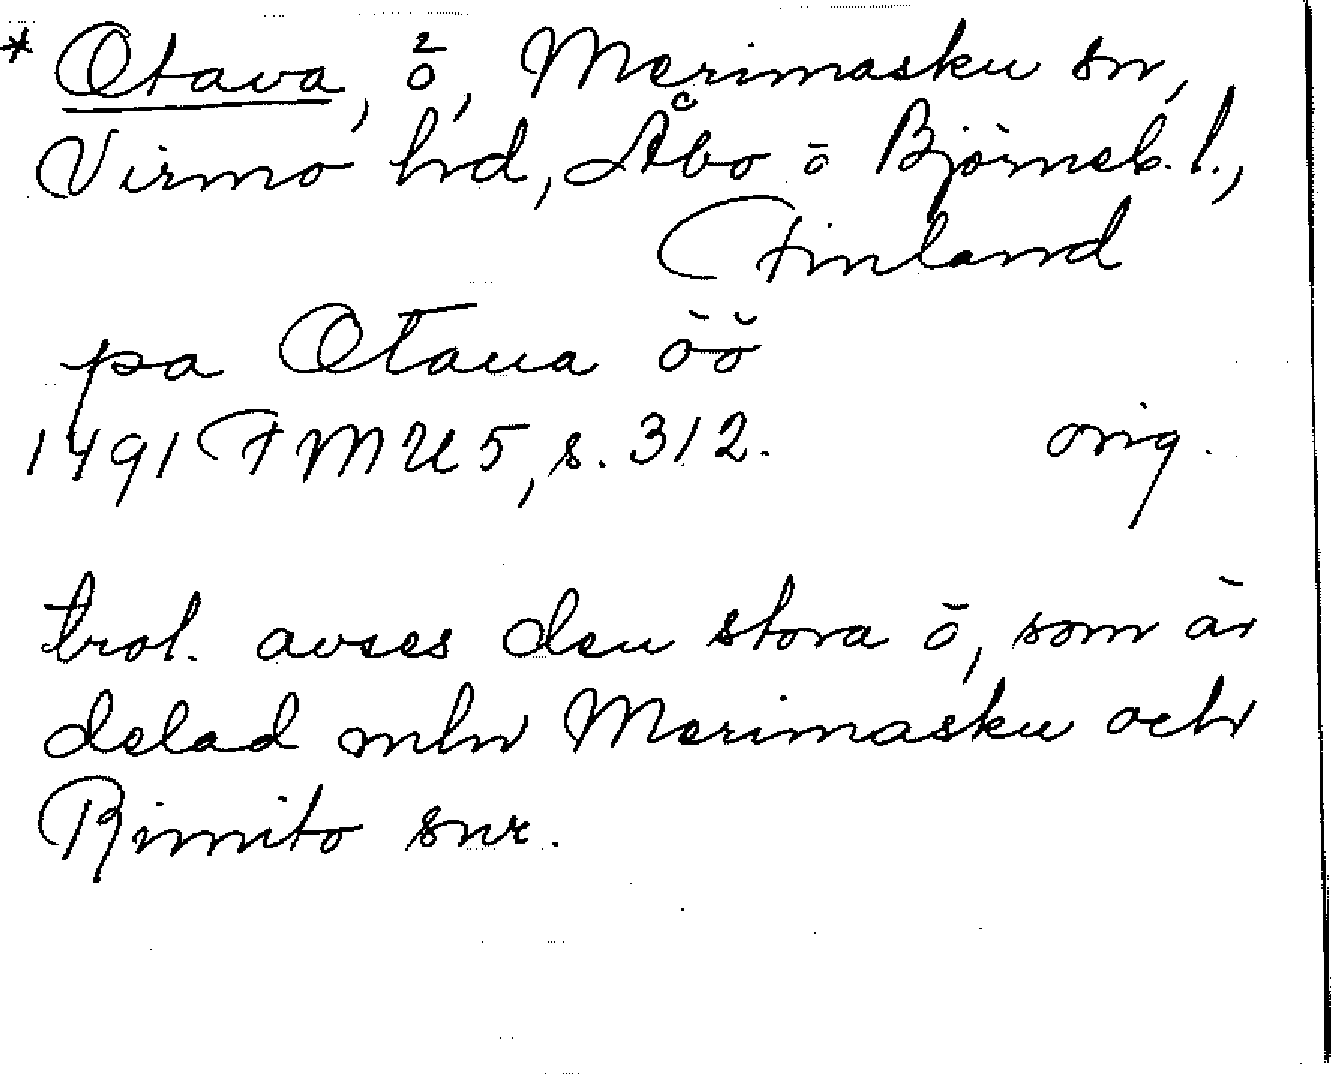 * Otava, ö, Merimasku sn,
Virmo hd, Åbo o Björneb. l.,
Finland
pa Otaua öö
1491 FMU 5, s. 312. orig.
trol. avses den stora ö, som är
delad mln Merimasku och
Rimito snr.